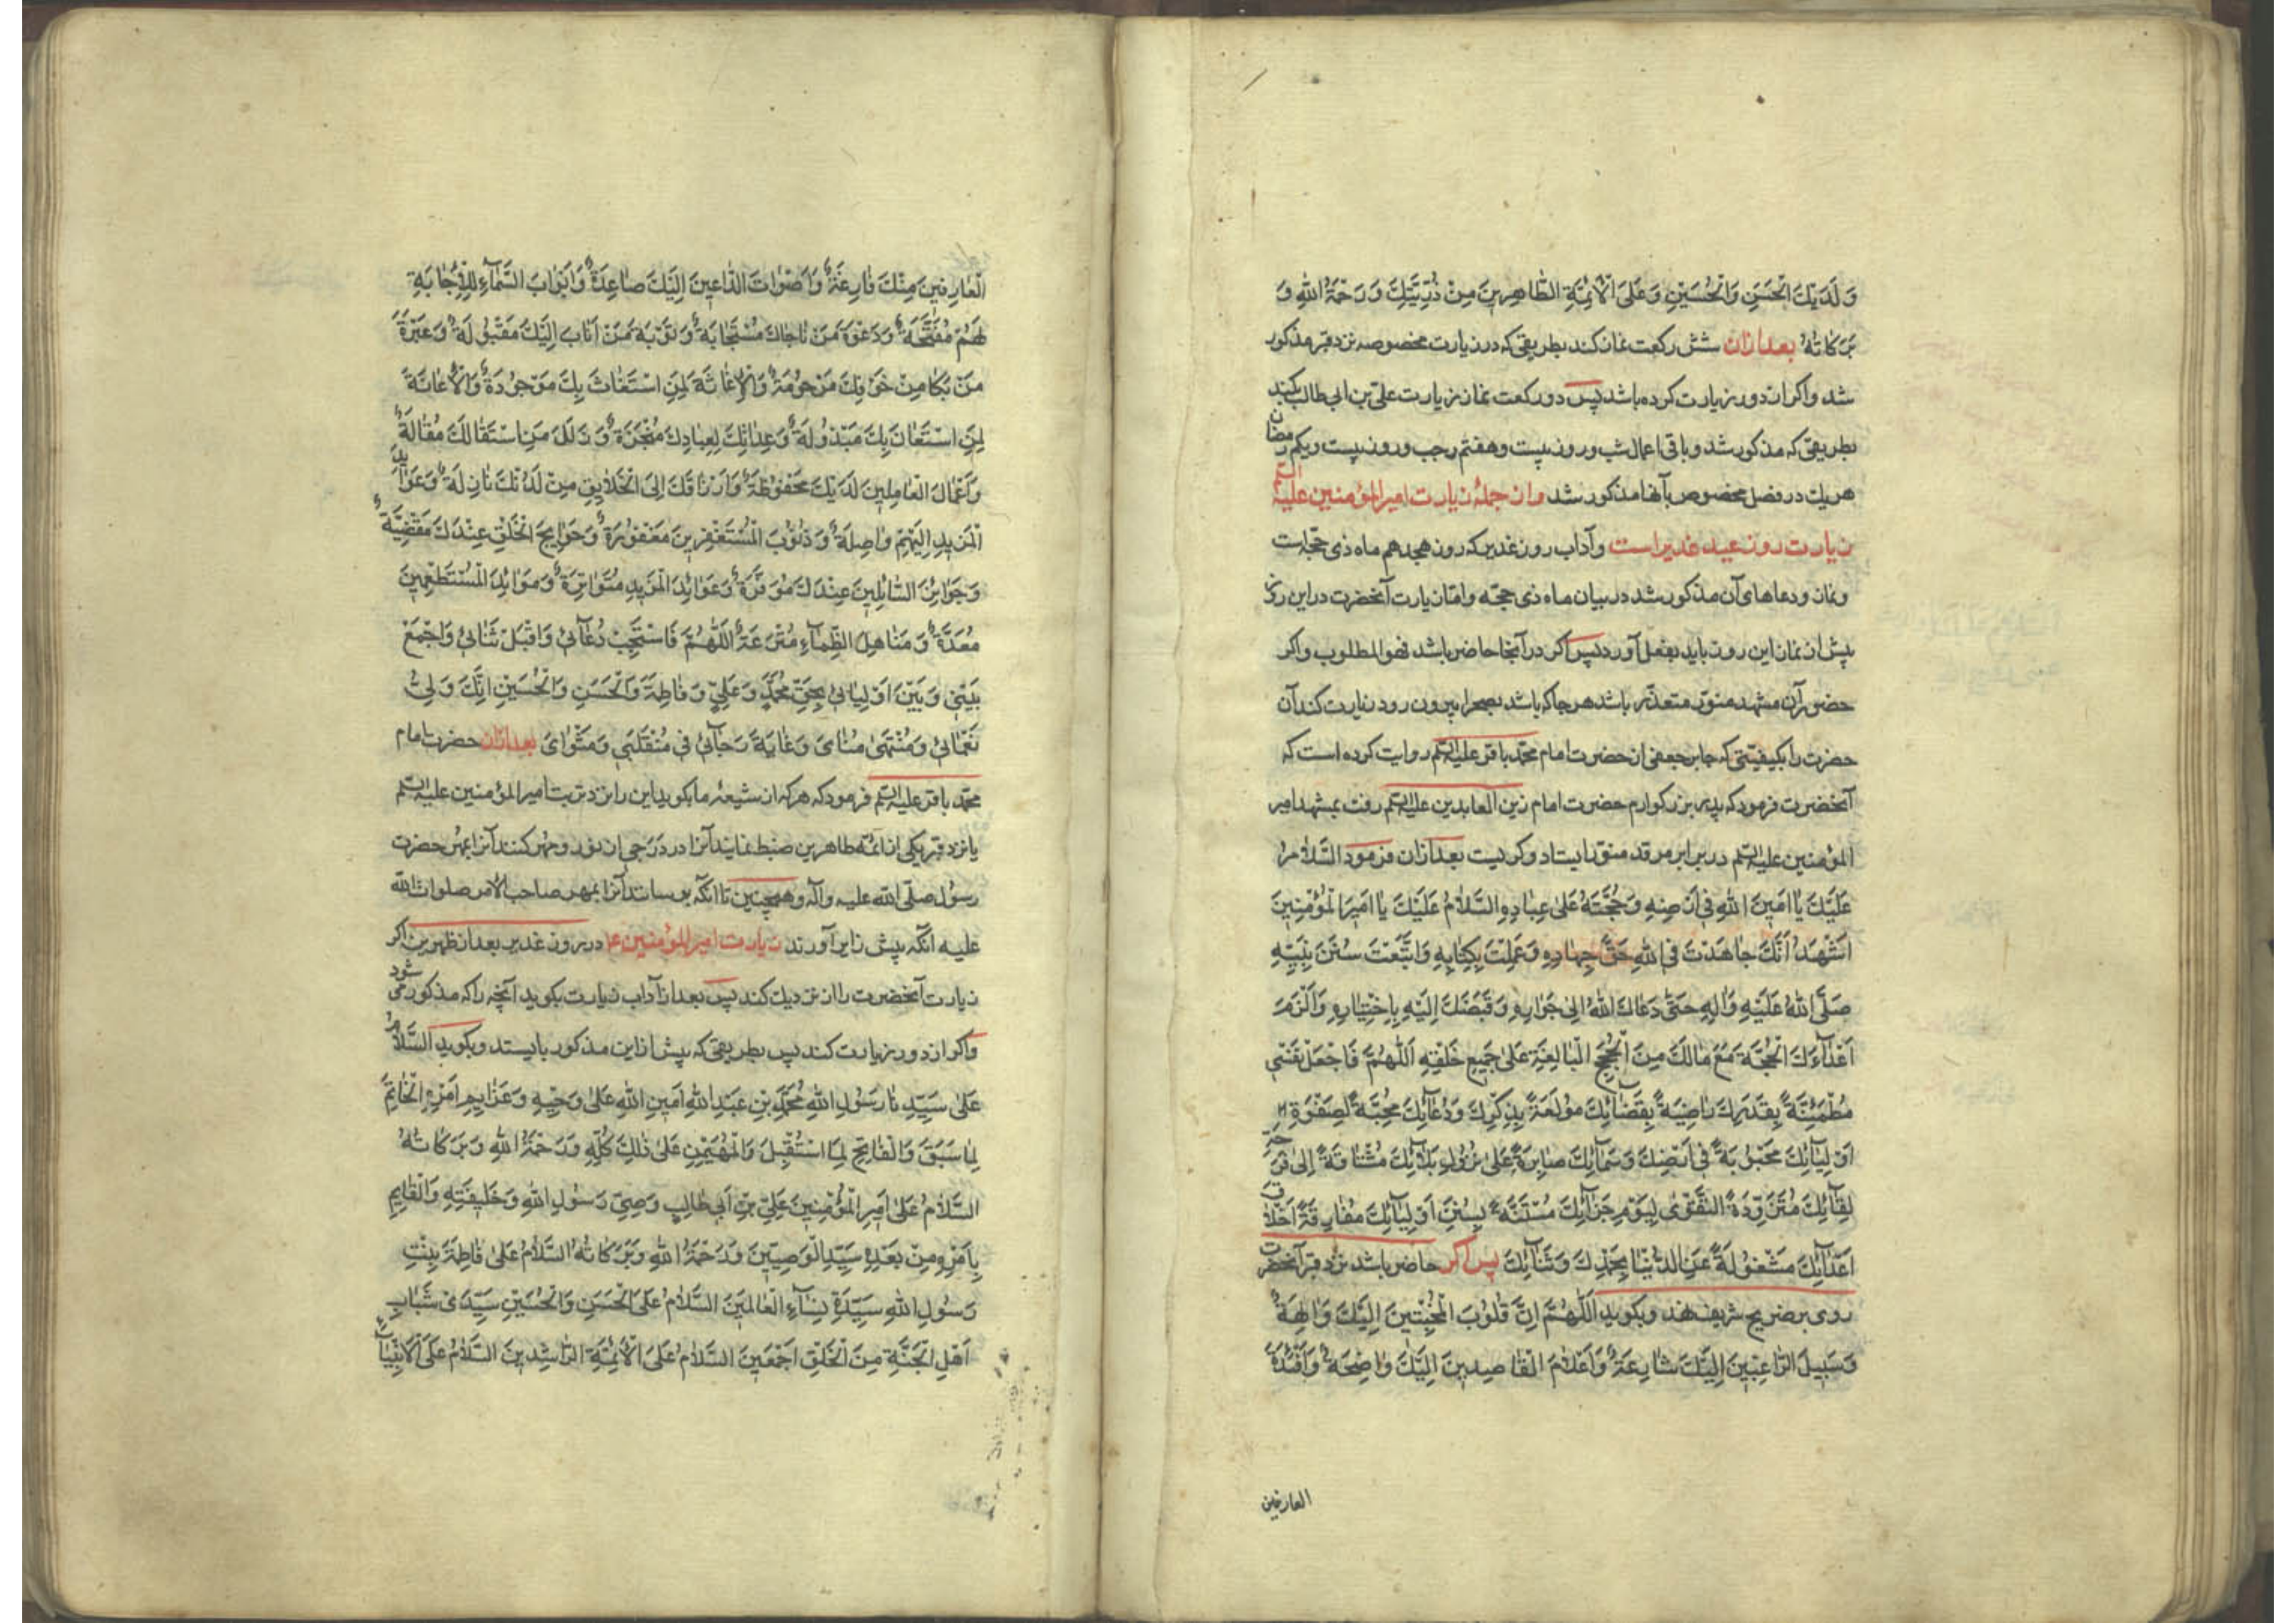 وَلَدَيْكَ الْحَسَنِ وَالْحُسَيْنِ وَعَلَى الْأَئِمَّةِ الطَّاهِرِينَ مِنْ ذُرِّيَّتِكَ وَرَحْمَةُ اللهِ وَ
بَرَكَاتُهُ بعد ازان شش رکعت نماز کند بطریقی که در زیارت مخصوصه نزد قبر مذکور
شد و اکر از دور زیارت کرده باشد پس دو رکعت نماز زیارت علی بن ابی طالب بکند
بطریقی که مذکور شد و باقی اعمال شب و روز بیست و هفتم رجب و روز بیست ویکم رمضان
هریک در فصل مخصوص بآنها مذکور شد و از جملهٔ زیارت امیر المؤمنین علیه السلم
زیارت روز عید غدیر است و آداب روز غدیر که روز هجدهم ماه ذی حجّه است
و نماز و دعاهای آن مذکور شد در بیان ماه ذی حجّه و امّا زیارت آنحضرت در این روز
پیش از نماز این روز باید بفعل آورد پس اکر در آنجا حاضر باشد فهو المطلوب و اکر
حضور آن مشهد منوّر متعذّر باشد هر جا که باشد بصحرا بیرون رود و زیارت کند آن
حضرت را بکیفیّتی که جابر جعفی از حضرت امام محمّد باقر علیه السلم روایت کرده است که
آنحضرت فرمود که پدر بزرکوارم حضرت امام زین العابدین علیه السلم رفت بمشهد امیر
المؤمنین علیه السلم در برابر مرقد منوّر ایستاد و کریست بعد ازان فرمود السَّلَامُ
عَلَيْكَ يَا اَمِينَ اللهِ فِي اَرْضِهِ وَحُجَّتَهُ عَلَى عِبَادِهِ السَّلَامُ عَلَيْكَ يَا اَمِيرَ الْمُؤْمِنِينَ
اَشْهَدُ اَنَّكَ جَاهَدْتَ فِي اللهِ حَقَّ جِهَادِهِ وَعَمِلْتَ بِكِتَابِهِ وَاتَّبَعْتَ سُنَنَ نَبِيِّهِ
صَلَّى اللهُ عَلَيْهِ وَآلِهِ حَتَّى دَعَاكَ اللهُ اِلَى جِوَارِهِ وَقَبَضَكَ اِلَيْهِ بِاخْتِيَارِهِ وَاَلْزَمَ
اَعْدَاءَكَ الْحُجَّةَ مَعَ مَالَكَ مِنَ الْحُجَجِ الْبَالِغَةِ عَلَى جَمِيعِ خَلْقِهِ اَللّهُمَّ فَاجْعَلْ نَفْسِي
مُطْمَئِنَّةً بِقَدَرِكَ رَاضِيَةً بِقَضَائِكَ مُولَعَةً بِذِكْرِكَ وَدُعَائِكَ مُحِبَّةً لِصَفْوَةِ
اَوْلِيَائِكَ مَحْبُوبَةً فِي اَرْضِكَ وَسَمَائِكَ صَابِرَةً عَلَى نُزُولِ بَلَائِكَ مُشْتَاقَةً اِلَى فَرْحَةِ
لِقَائِكَ مُتَزَوِّدَةً التَّقْوَى لِيَوْمِ جَزَائِكَ مُسْتَنَّةً بِسُنَنِ اَوْلِيَائِكَ مُفَارِقَةً اَخْلَاقَ
اَعْدَائِكَ مَشْغُولَةً عَنِ الدُّنْيَا بِحَمْدِكَ وَثَنَائِكَ پس اکر حاضر باشد نزد قبر آنحضرت
روی بر ضریح شریف نهد و بکوید اَللّهُمَّ اِنَّ قُلُوبَ الْمُخْبِتِينَ اِلَيْكَ وَالِهَةٌ
وَسَبِيلَ الرَّاغِبِينَ اِلَيْكَ شَارِعَةٌ وَاَعْلَامَ الْقَاصِدِينَ اِلَيْكَ وَاضِحَةٌ وَاَفْئِدَةَ
العارفین
الْعَارِفِينَ مِنْكَ فَازِعَةٌ وَاَصْوَاتَ الدَّاعِينَ اِلَيْكَ صَاعِدَةٌ وَاَبْوَابَ السَّمَاءِ لِلْاِجَابَةِ
لَهُمْ مُفَتَّحَةٌ وَدَعْوَةَ مَنْ نَاجَاكَ مُسْتَجَابَةٌ وَتَوْبَةَ مَنْ اَنَابَ اِلَيْكَ مَقْبُولَةٌ وَعَبْرَةَ
مَنْ بَكَا مِنْ خَوْفِكَ مَرْحُومَةٌ وَالْاِغَاثَةَ لِمَنِ اسْتَغَاثَ بِكَ مَوْجُودَةٌ وَالْاِعَانَةَ
لِمَنِ اسْتَعَانَ بِكَ مَبْذُولَةٌ وَعِدَاتِكَ لِعِبَادِكَ مُنْجَزَةٌ وَزَلَلَ مَنِ اسْتَقَالَكَ مُقَالَةٌ
وَاَعْمَالَ الْعَامِلِينَ لَدَيْكَ مَحْفُوظَةٌ وَاَرْزَاقَكَ اِلَى الْخَلَائِقِ مِنْ لَدُنْكَ نَازِلَةٌ وَعَوَائِدَ
الْمَزِيدِ اِلَيْهِمْ وَاصِلَةٌ وَذُنُوبَ الْمُسْتَغْفِرِينَ مَغْفُورَةٌ وَحَوَائِجَ الْخَلْقِ عِنْدَكَ مَقْضِيَّةٌ
وَجَوَائِزَ السَّائِلِينَ عِنْدَكَ مُوَفَّرَةٌ وَعَوَائِدَ الْمَزِيدِ مُتَوَاتِرَةٌ وَمَوَائِدَ الْمُسْتَطْعِمِينَ
مُعَدَّةٌ وَمَنَاهِلَ الظِّمَاءِ مُتْرَعَةٌ اَللّهُمَّ فَاسْتَجِبْ دُعَائِي وَاقْبَلْ ثَنَائِي وَاجْمَعْ
بَيْنِي وَبَيْنَ اَوْلِيَائِي بِحَقِّ مُحَمَّدٍ وَعَلِيٍّ وَفَاطِمَةَ وَالْحَسَنِ وَالْحُسَيْنِ اِنَّكَ وَلِيُّ
نَعْمَائِي وَمُنْتَهَى مُنَايَ وَغَايَةُ رَجَائِي فِي مُنْقَلَبِي وَمَثْوَايَ بعد ازان حضرت امام
محمّد باقر علیه السلم فرمود که هر که از شیعهٔ ما بکوید این را نزد تربت امیر المؤمنین علیه السلم
یا نزد قبر یکی از ائمّه طاهرین ضبط نمایند آنرا در درجی از نور و مهر کنند آنرا بمهر حضرت
رسول صلّی الله علیه و آله و همچنین تا آنکه برسانند آنرا بمهر صاحب الامر صلوات الله
علیه آنکه پیش زایر آورند زیارت امیر المؤمنین ع در روز غدیر بعد از ظهرین اکر
زیارت آنحضرت را از نزدیک کند پس بعد از آداب زیارت بکوید آنچه را که مذکور می شود
و اکر از دور زیارت کند پس بطریقی که پیش از این مذکور بایستد و بکوید السَّلَامُ
عَلَى سَيِّدِنَا رَسُولِ اللهِ مُحَمَّدِ بْنِ عَبْدِ اللهِ اَمِينِ اللهِ عَلَى وَحْيِهِ وَعَزَائِمِ اَمْرِهِ الْخَاتِمِ
لِمَا سَبَقَ وَالْفَاتِحِ لِمَا اسْتُقْبِلَ وَالْمُهَيْمِنِ عَلَى ذلِكَ كُلِّهِ وَرَحْمَةُ اللهِ وَبَرَكَاتُهُ
السَّلَامُ عَلَى اَمِيرِ الْمُؤْمِنِينَ عَلِيِّ بْنِ اَبِي طَالِبٍ وَصِيِّ رَسُولِ اللهِ وَخَلِيفَتِهِ وَالْقَايِمِ
بِاَمْرِهِ مِنْ بَعْدِهِ سَيِّدِ الْوَصِيِّينَ وَرَحْمَةُ اللهِ وَبَرَكَاتُهُ السَّلَامُ عَلَى فَاطِمَةَ بِنْتِ
رَسُولِ اللهِ سَيِّدَةِ نِسَاءِ الْعَالَمِينَ السَّلَامُ عَلَى الْحَسَنِ وَالْحُسَيْنِ سَيِّدَيْ شَبَابِ
اَهْلِ الْجَنَّةِ مِنَ الْخَلْقِ اَجْمَعِينَ السَّلَامُ عَلَى الْاَئِمَّةِ الرَّاشِدِينَ السَّلَامُ عَلَى الْاَنْبِيَاءِ